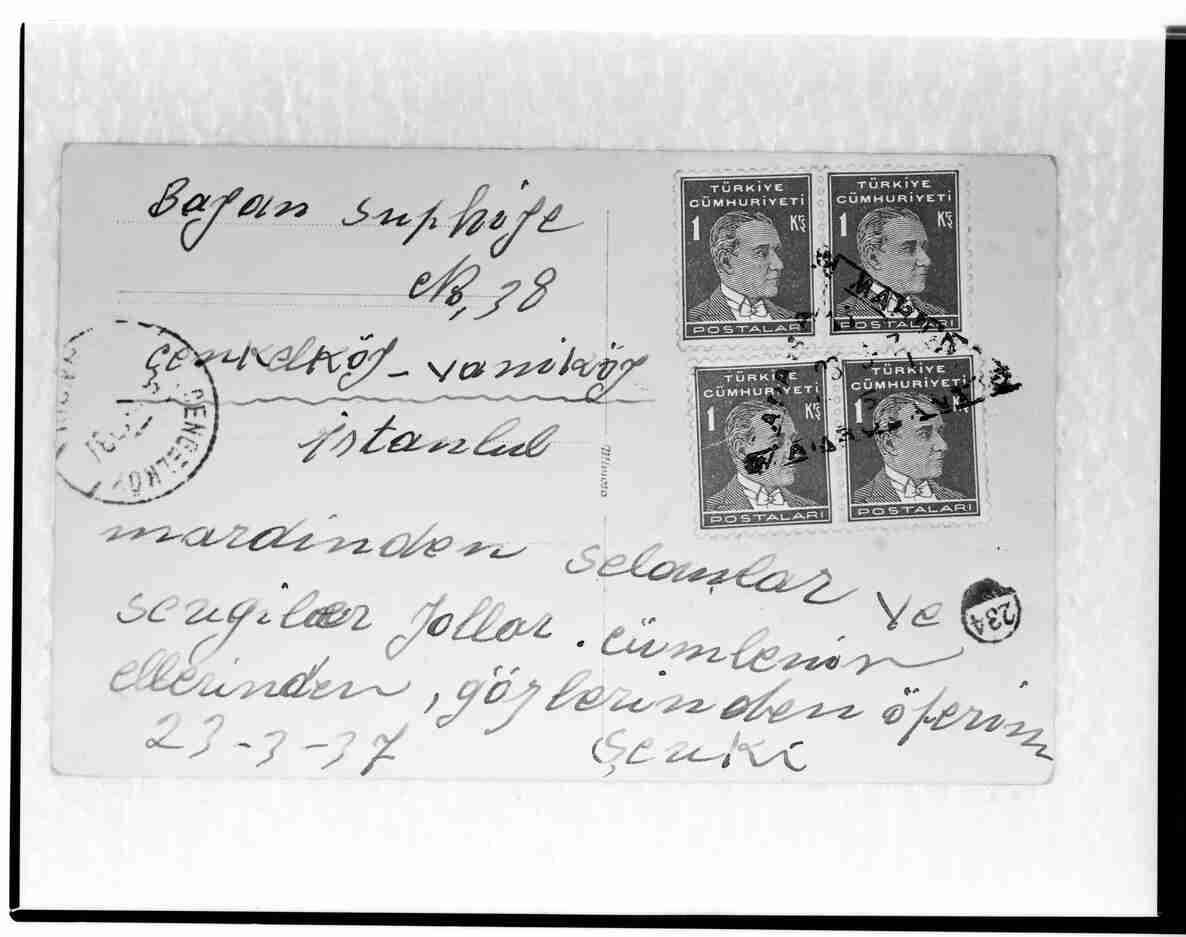 Bayan Suphiye
No, 38
Çenkelköy - vaniköy
istanlub
mardinden selamlar ve
sevgiler yollar. cümlenin
ellerinden, gözlerinden öperim
23-3-37 Şevki
TÜRKİYE
CÜMHURİYETİ
1 KŞ
POSTALARI
TÜRKİYE
CÜMHURİYETİ
1 KŞ
POSTALARI
TÜRKİYE
CÜMHURİYETİ
1 KŞ
POSTALARI
TÜRKİYE
CÜMHURİYETİ
1 KŞ
POSTALARI
ÇENGELKÖY
Mimoto
234